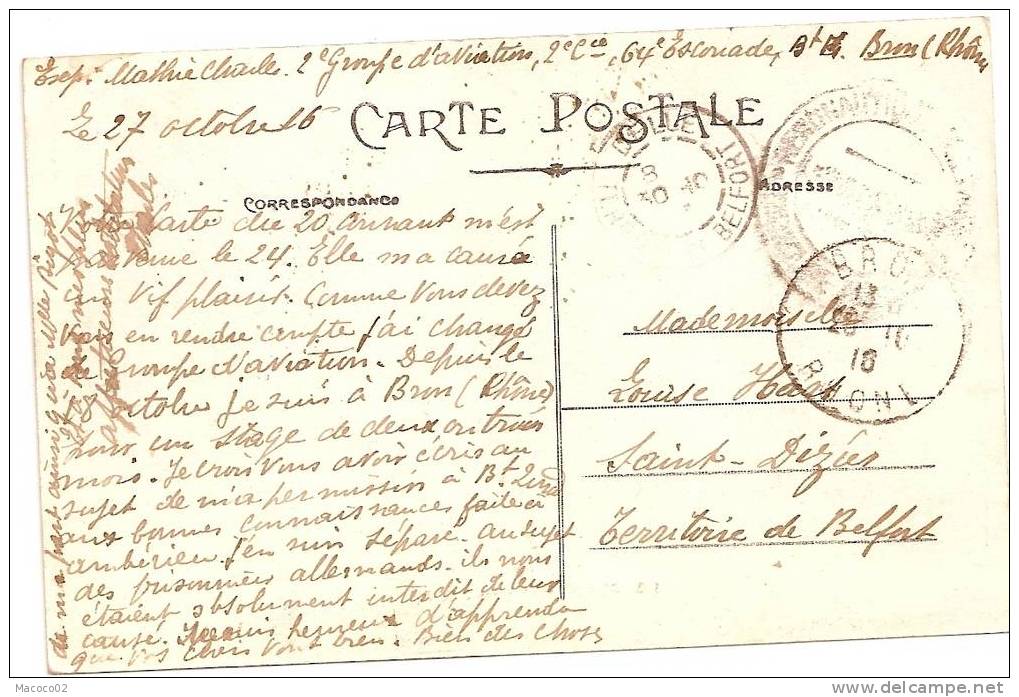 Exp: Mathie Charles. 2e Groupe d'aviation, 2e Cie, 64e Escouade, Bt Bron (Rhône
Le 27 octobre 16
CARTE POSTALE
CORRESPONDANCE
ADRESSE
Votre carte du 20 courant m'est
parvenue le 24. Elle m'a causé
un vif plaisir. Comme vous devez
vous en rendre compte j'ai changé
de Groupe d'aviation. Depuis le
18 octobre je suis à Bron (Rhône)
pour un stage de deux ou trois
mois. Je crois vous avoir écris au
sujet de ma permission à
aux bonnes connaissances faite à
ambérieu j'en suis séparé. au sujet
des prisonniers allemands. ils nous
étaient absolument interdit de leur
cause. Je suis heureux d'apprendre
que vos chers vont bien. Bien des choses
de ma part ainsi qu'à Melle
Mademoiselle
Louise
Saint-Dizier
Territoire de Belfort
BELFORT
BRON
13
16
RHONE
Macoco02
www.delcampe.net